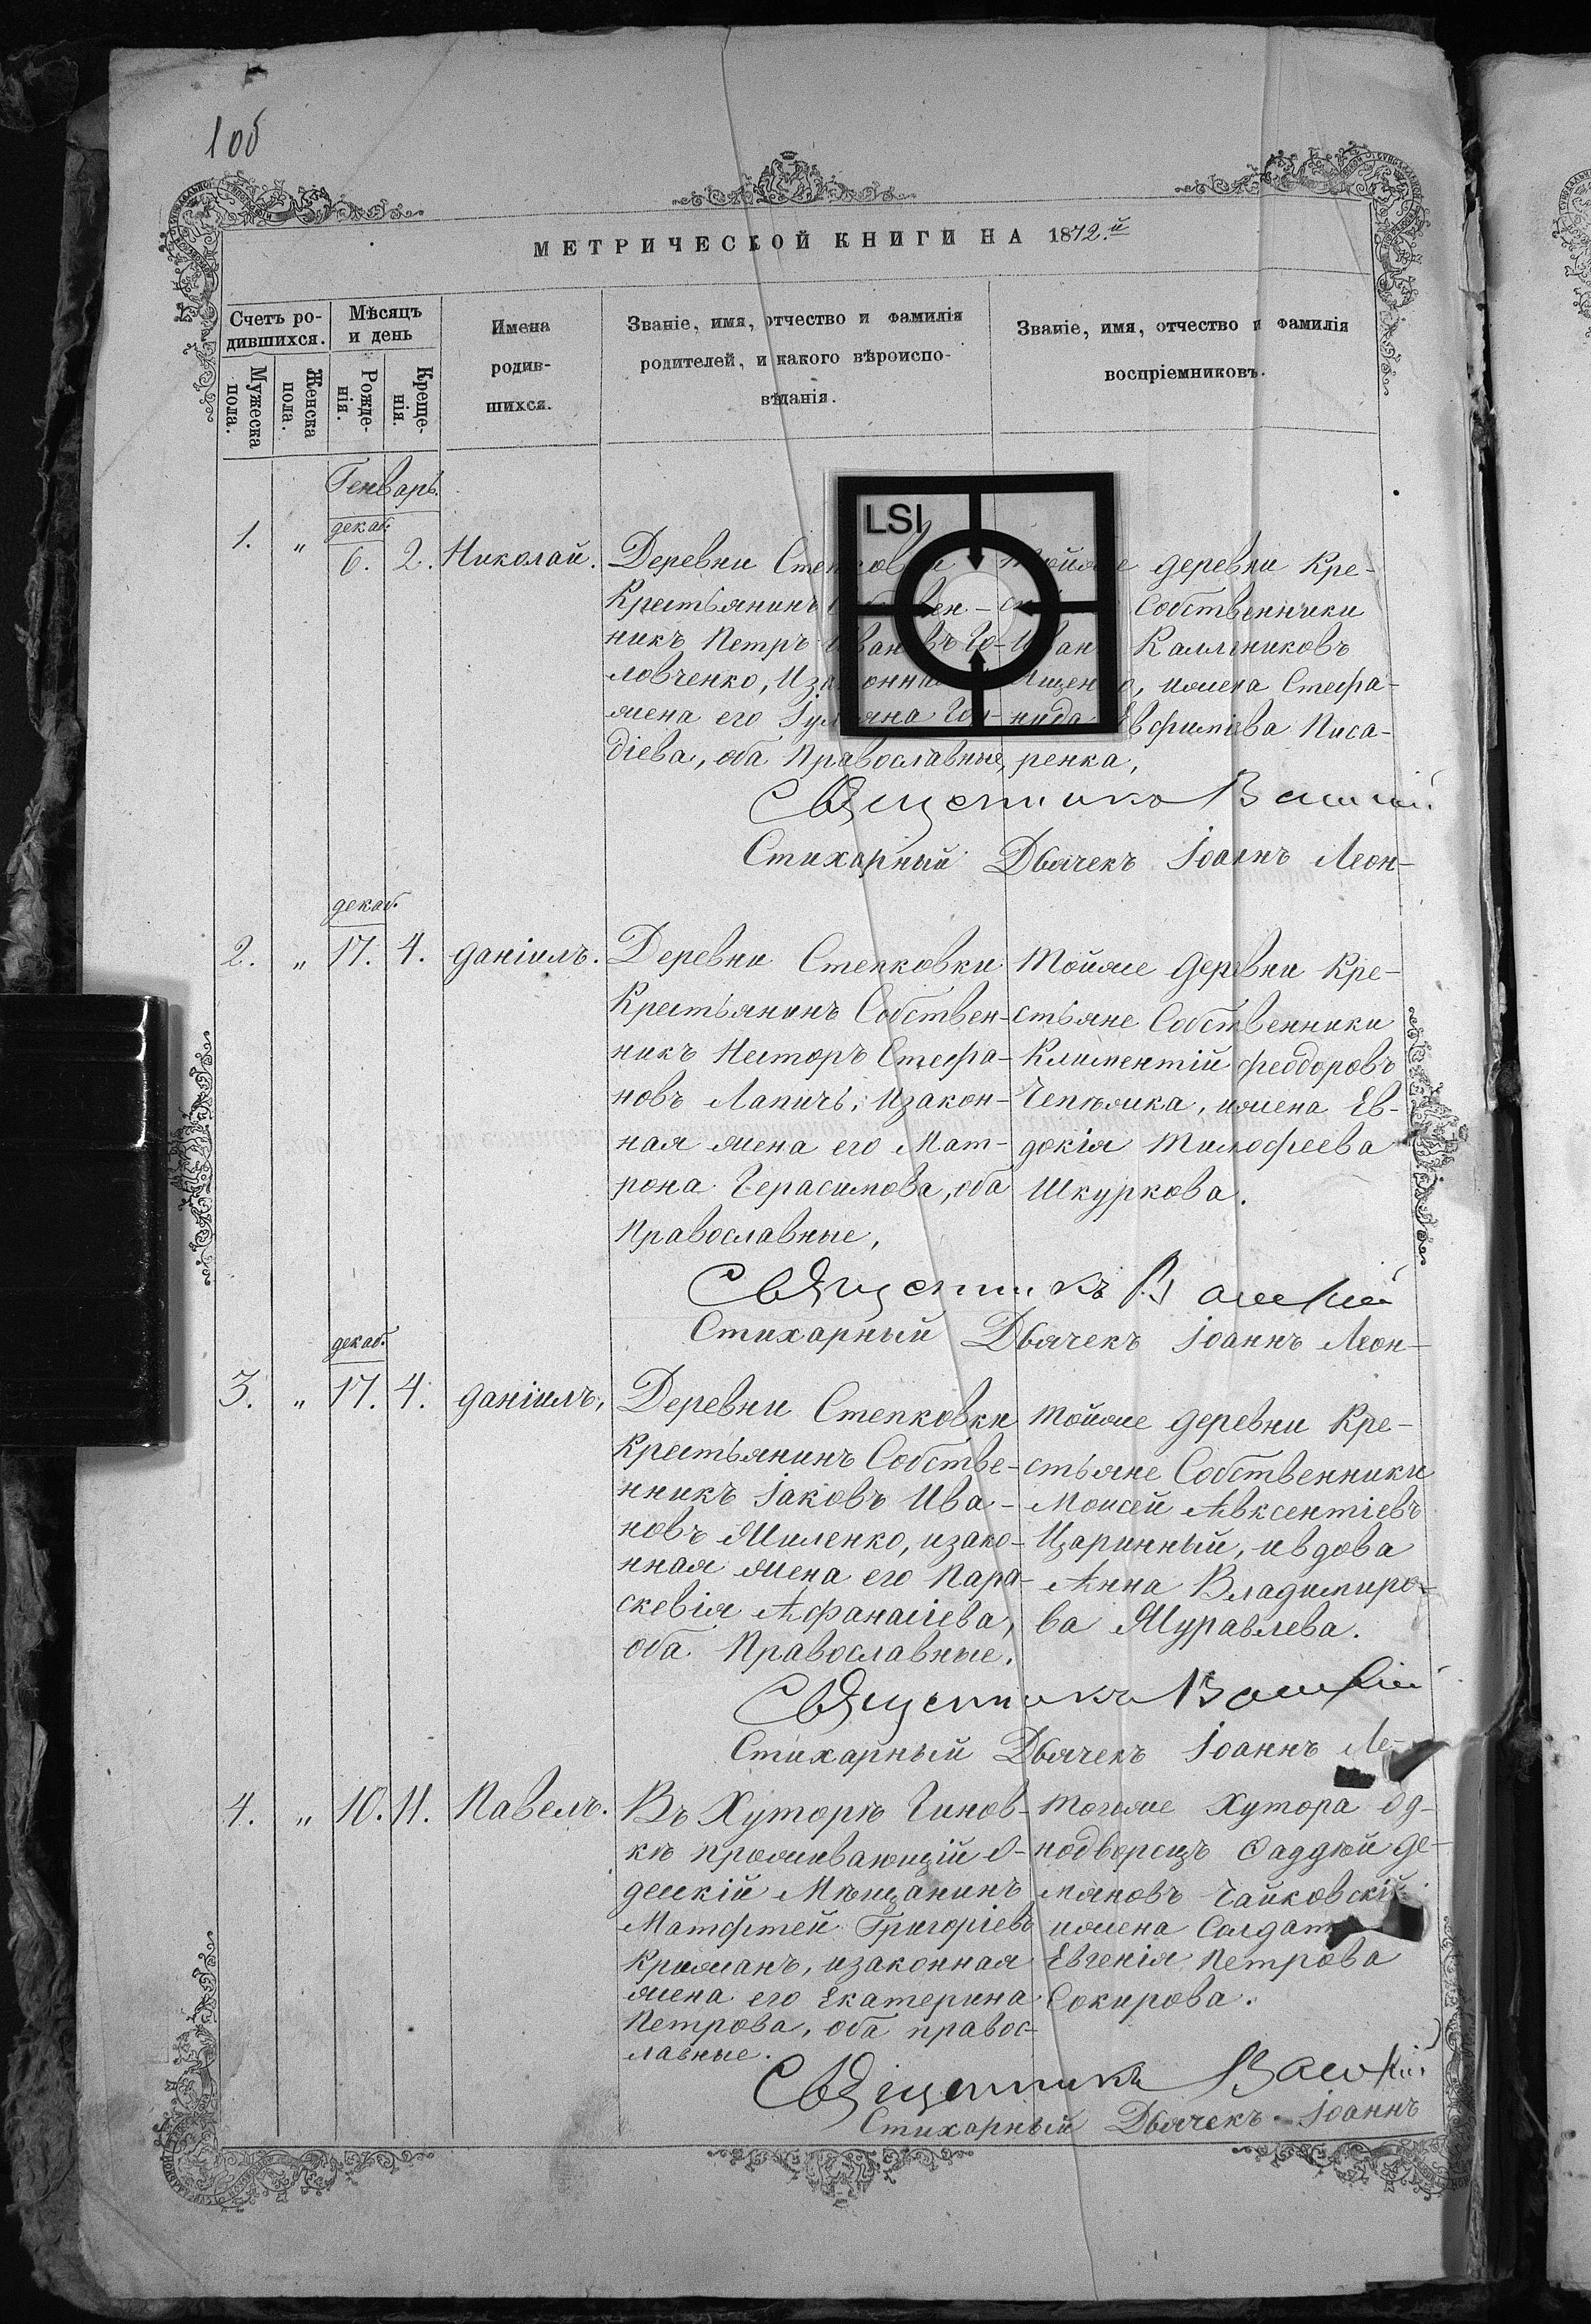 1об
МЕТРИЧЕСКОЙ КНИГИ НА 1872.й
Счетъ ро-
дившихся.
Мужеска
пола.
Женска
пола.
Мѣсяцъ
и день
Рожде-
нія.
Креще-
нія.
Имена
родив-
шихся.
Званіе, имя, отчество и фамилія
родителей, и какого вѣроиспо-
вѣданія.
Званіе, имя, отчество и фамилія
воспріемниковъ.
Генварь.
декаб.
1. " 6. 2. Николай.
Деревни Степковки
Крестьянинъ Собствен-
никъ Петръ Ивановъ Го-
ловченко, изаконная
жена его Іуліана
діева, оба Православные,
тойже деревни Кре-
Собственники
Иванъ Каллениковъ
Ищенко, ижена Стефа-
нида Евфиміева Писа-
ренка,
LSI
Священникъ
Стихарный Дьячекъ Іоаннъ Леон-
декаб.
2. " 17. 4. Даніилъ.
Деревни Степковки
Крестьянинъ Собствен-
никъ Несторъ Стефа-
новъ Лапичь, изакон-
ная жена его Мат-
рона Герасимова, оба
Православные,
тойже деревни Кре-
стьяне Собственники
Климентій Феодоровъ
Чепѣжка, ижена Ев-
докія Тимофеева
Шкуркова.
Священникъ
Стихарный Дьячекъ Іоаннъ Леон-
декаб.
3. " 17. 4. Даніилъ,
Деревни Степковки
Крестьянинъ Собстве-
нникъ Іаковъ Ива-
новъ Жиленко, изако-
нная жена его Пара-
скевія Афанасіева,
оба Православные.
тойже деревни Кре-
стьяне Собственники
Моисей Авксентіевъ
Царинный, ивдова
Анна Владимиро-
ва Журавлева.
Священникъ
Стихарный Дьячекъ Іоаннъ Ле-
4. " 10. 11. Павелъ.
Въ Хуторѣ Гинов-
кѣ проживающій О-
десскій Мѣщанинъ
Матфтей Григоріевъ
Крижанъ, изаконная
жена его Екатерина
Петрова, оба правос-
лавные.
тогоже Хутора Од-
нодворецъ Фаддѣй Де-
мяновъ Чайковскій
ижена
Евгенія Петрова
Сокирова.
Священникъ
Стихарный Дьячекъ Іоаннъ